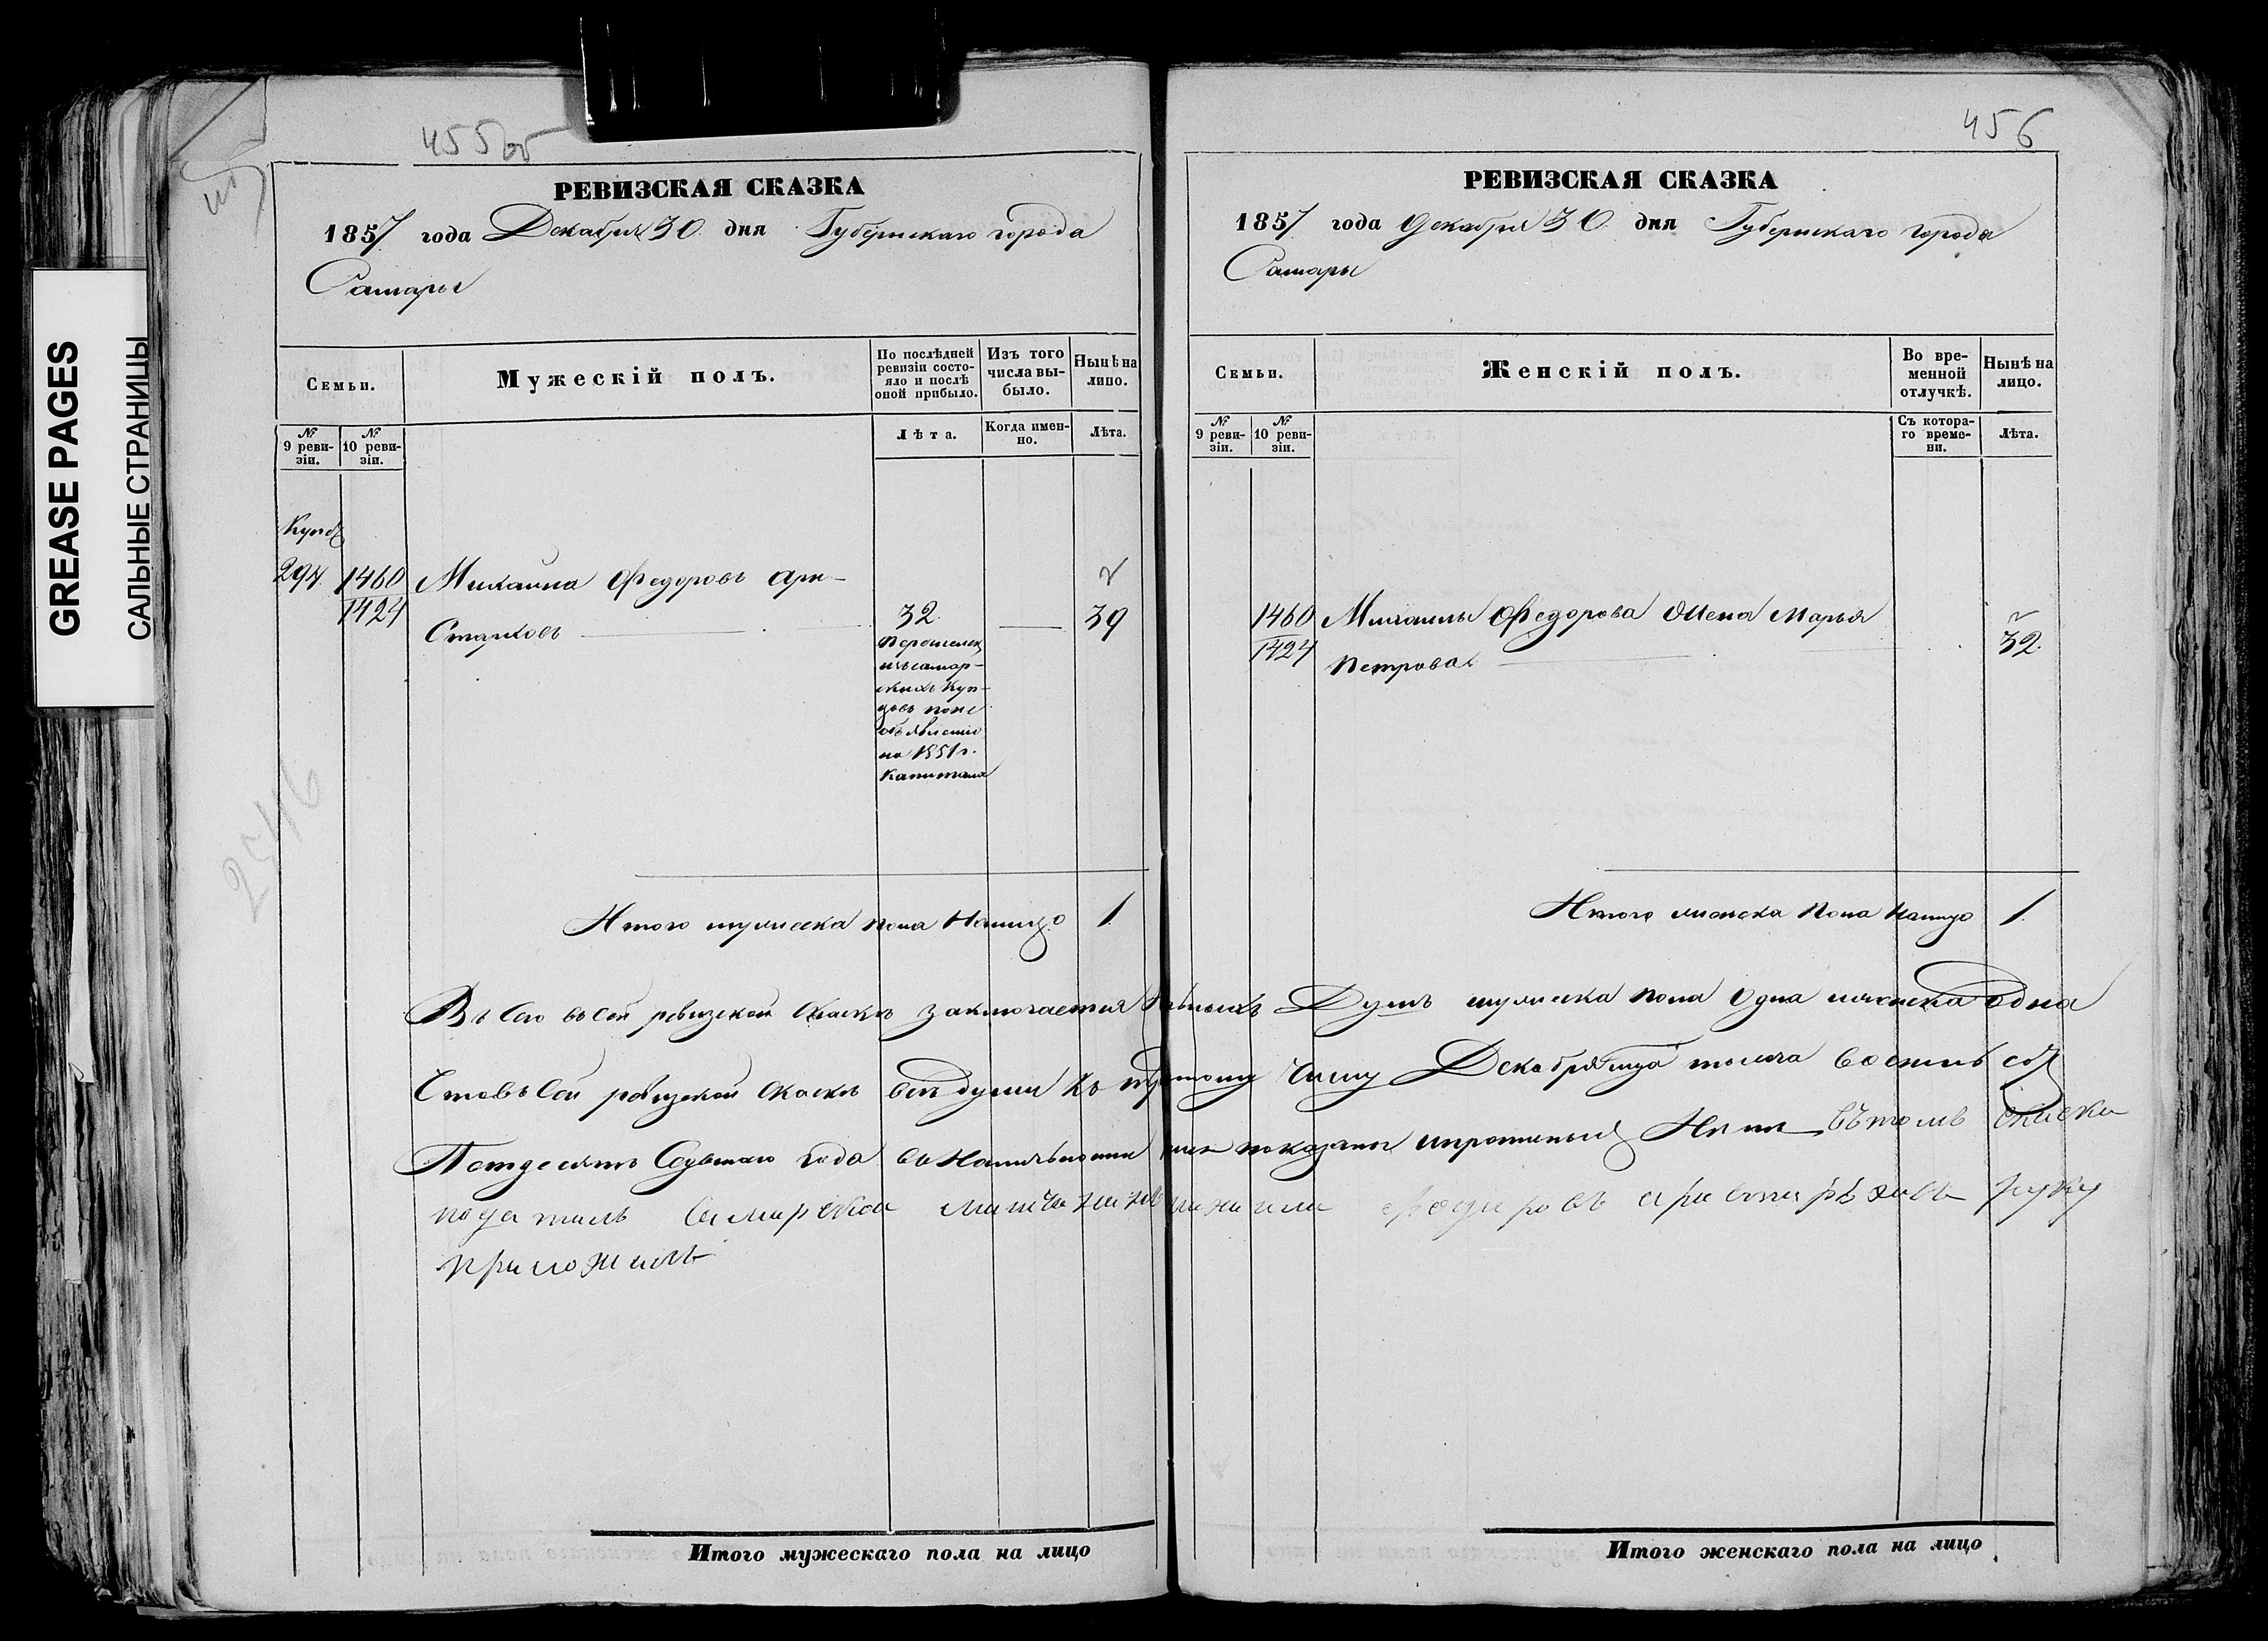 GREASE PAGES
САЛЬНЫЕ СТРАНИЦЫ
455об
РЕВИЗСКАЯ СКАЗКА
1857 года Декабря 30 дня Губернскаго города
Самары
Семьи.
Мужескій полъ.
По послѣдней ревизіи состояло и послѣ оной прибыло.
Изъ того числа выбыло.
Нынѣ на лицо.
№ 9 ревизіи.
№ 10 ревизіи.
Лѣта.
Когда именно.
Лѣта.
Купц
294 1460 Михаила Федоровъ Ари-
1424 Старховъ 32 39
Перешелъ
изъ самар-
скихъ Куп-
цовъ по не
объявленію
на 1851 г.
Капитала
2546
Итого мужеска пола Налицо 1
456
РЕВИЗСКАЯ СКАЗКА
1857 года Декабря 30 дня Губернскаго города
Самары
Семьи.
Женскій полъ.
Во временной отлучкѣ.
Нынѣ на лицо.
№ 9 ревизіи.
№ 10 ревизіи.
Съ котораго времени.
Лѣта.
1460 Михаилы Федорова Жена Марья
1424 Петрова 32
Итого женска Пола налицо 1.
Всего въ Сей ревизской Сказкѣ заключается Душъ мужеска пола Одна женска Одна
Ревизской Сказкѣ всѣ души къ Числу Декабря тысяча восемь сот
Пятдесятъ Седьмаго года въ Наличности показаны Къ сей сказки
податиль Самарской Федоровъ руку
приложилъ
Итого мужескаго пола на лицо
Итого женскаго пола на лицо